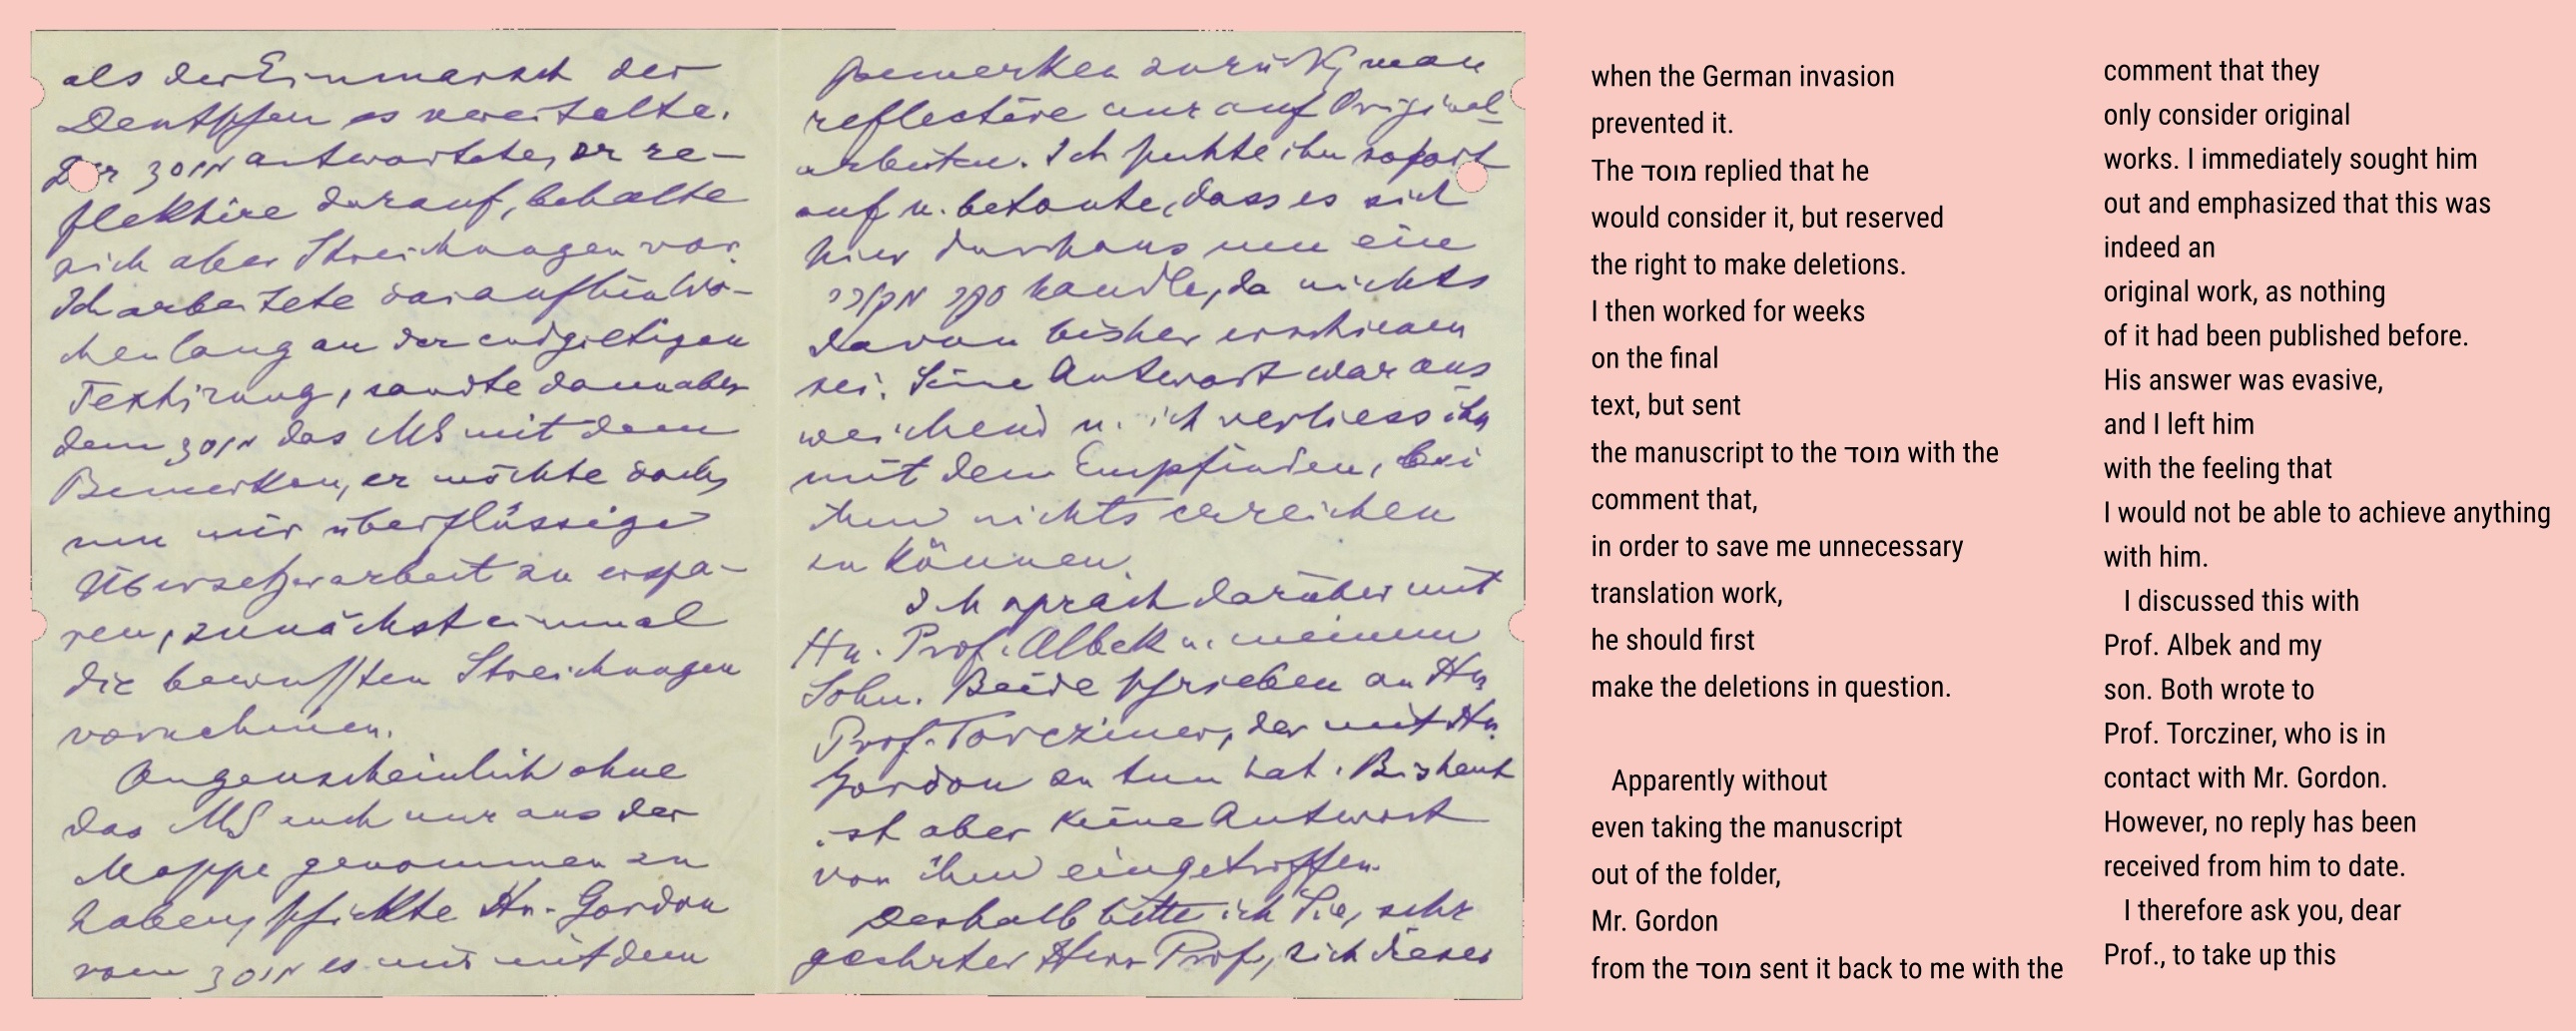 als der Einmarsch der
Deutschen es vereitelte.
Der מוסד antwortete, er re-
flektire darauf, behalte
sich aber Streichungen vor.
Ich arbeitete daraufhin Wo-
chen lang an der endgiltigen
Textirung, sandte dann aber
dem מוסד das MS mit dem
Bemerken, er möchte doch,
um mir überflüssige
Übersetzerarbeit zu erspa-
ren, zunächst einmal
die bewussten Streichungen
vornehmen.
Augenscheinlich ohne
das MS auch nur aus der
Mappe genommen zu
haben, schickte Hr. Gordon
vom מוסד es mir mit dem
Bemerken zurück, man
reflectire nur auf Original-
arbeiten. Ich suchte ihn sofort
auf u. betonte, dass es sich
hier durchaus um eine
ספר מקורי handle, da nichts
davon bisher erschienen
sei. Seine Antwort war aus
weichend u. ich verliess ihn
mit dem Empfinden, bei
ihm nichts erreichen
zu können.
Ich sprach darüber mit
Hn. Prof. Albek u. meinem
Sohn. Beide schrieben an Hn
Prof. Torcziner, der mit Hn.
Gordon zu tun hat. Bis heut
ist aber keine Antwort
von ihm eingetroffen.
Deshalb bitte ich Sie, sehr
geehrter Herr Prof., sich dieses
when the German invasion
prevented it.
The מוסד replied that he
would consider it, but reserved
the right to make deletions.
I then worked for weeks
on the final
text, but sent
the manuscript to the מוסד with the
comment that,
in order to save me unnecessary
translation work,
he should first
make the deletions in question.
Apparently without
even taking the manuscript
out of the folder,
Mr. Gordon
from the מוסד sent it back to me with the
comment that they
only consider original
works. I immediately sought him
out and emphasized that this was
indeed an
original work, as nothing
of it had been published before.
His answer was evasive,
and I left him
with the feeling that
I would not be able to achieve anything
with him.
I discussed this with
Prof. Albek and my
son. Both wrote to
Prof. Torcziner, who is in
contact with Mr. Gordon.
However, no reply has been
received from him to date.
I therefore ask you, dear
Prof., to take up this